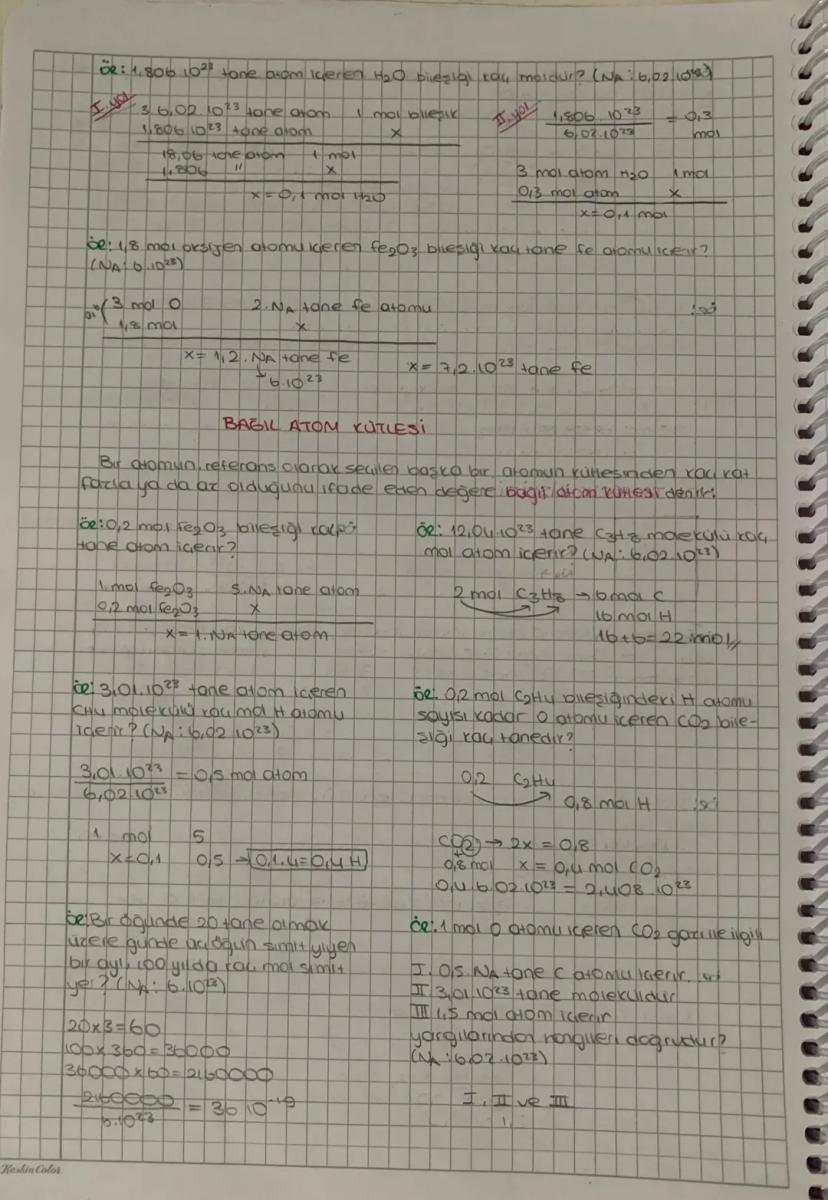 ör: 1,806.10²³ tane atom içeren H₂O bileşiği kaç moldür? (NA: 6,02.10²³)
I. yol
3.6,02.10²³ tane atom 1 mol bileşik
1,806.10²³ tane atom x
18,06 tane atom 1 mol
1,806 " x
x = 0,1 mol H₂O
II. yol
1,806.10²³ / 6,02.10²³ = 0,3 mol
3 mol atom H₂O 1 mol
0,3 mol atom x
x = 0,1 mol
ör: 1,8 mol oksijen atomu içeren Fe₂O₃ bileşiği kaç tane fe atomu içerir?
(NA: 6.10²³)
3 mol O 2.NA tane fe atomu
1,8 mol x
x = 1,2.NA tane fe
6.10²³
x = 7,2.10²³ tane fe
BAĞIL ATOM KÜTLESİ
Bir atomun, referans olarak seçilen başka bir atomun kütlesinden kaç kat
fazla ya da az olduğunu ifade eden değere bağıl atom kütlesi denir.
ör: 0,2 mol Fe₂O₃ bileşiği kaç
tane atom içerir?
1 mol fe₂O₃ 5.NA tane atom
0,2 mol fe₂O₃ x
x = 1.NA tane atom
ör: 12,04.10²³ tane C₃H₈ molekülü kaç
mol atom içerir? (NA: 6,02.10²³)
2 mol C₃H₈ → 6 mol C
16 mol H
16+6=22 mol
ör: 3,01.10²³ tane atom içeren
CH₄ molekülü kaç mol H atomu
içerir? (NA: 6,02.10²³)
3,01.10²³ / 6,02.10²³ = 0,5 mol atom
1 mol 5
x=0,1 0,5 → 0,1.4=0,4 H
ör: 0,2 mol C₂H₄ bileşiğindeki H atomu
sayısı kadar O atomu içeren CO₂ bile-
şiği kaç tanedir?
0,2 C₂H₄
0,8 mol H
CO₂ → 2x = 0,8
0,8 mol x = 0,4 mol CO₂
0,4.6,02.10²³ = 2,408.10²³
ör: Bir öğünde 20 tane olmak
üzere günde üç öğün simit yiyen
bir ayı, 100 yılda kaç mol simit
yer? (NA: 6.10²³)
20x3=60
100x360=36000
36000x60=2160000
2160000 / 6.10²³ = 36.10⁻¹⁹
ör: 1 mol O atomu içeren CO₂ gazı ile ilgili
I. 0,5.NA tane C atomu içerir.
II 3,01.10²³ tane moleküldür
III 1,5 mol atom içerir
yargılarından hangileri doğrudur?
(NA: 6,02.10²³)
I, II ve III
KeskinColor